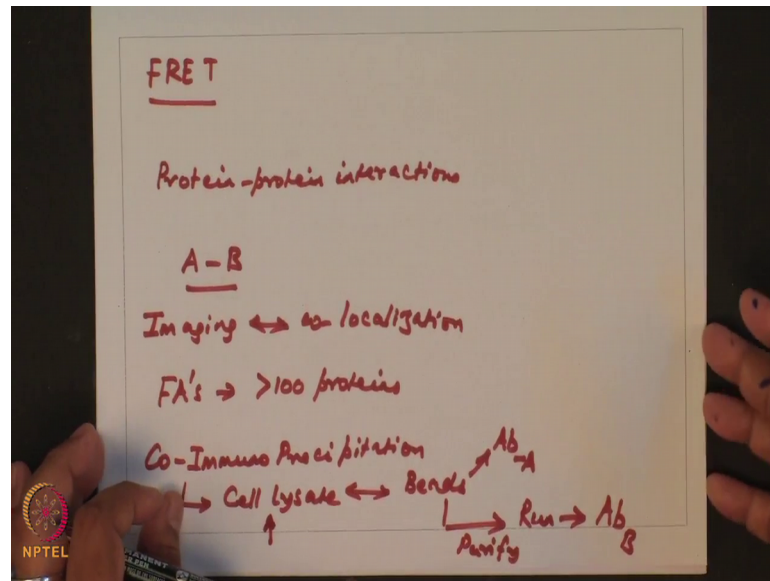 FRET
Protein-protein interactions
A-B
Imaging ↔ co localization
FA's → >100 proteins
Co-Immuno Precipitation
Ab-A
↳ Cell lysate ↔ Beads
Purify Run → Ab B
NPTEL